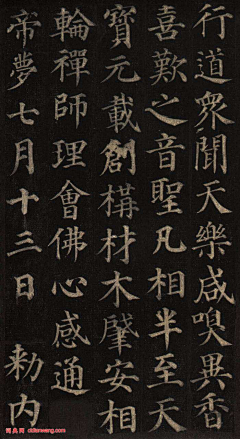 行道衆聞天樂咸嗅異香
喜歎之音聖凡相半至天
寶元載創構材木肇安相
輪禪師理會佛心感通
帝夢七月十三日勅内